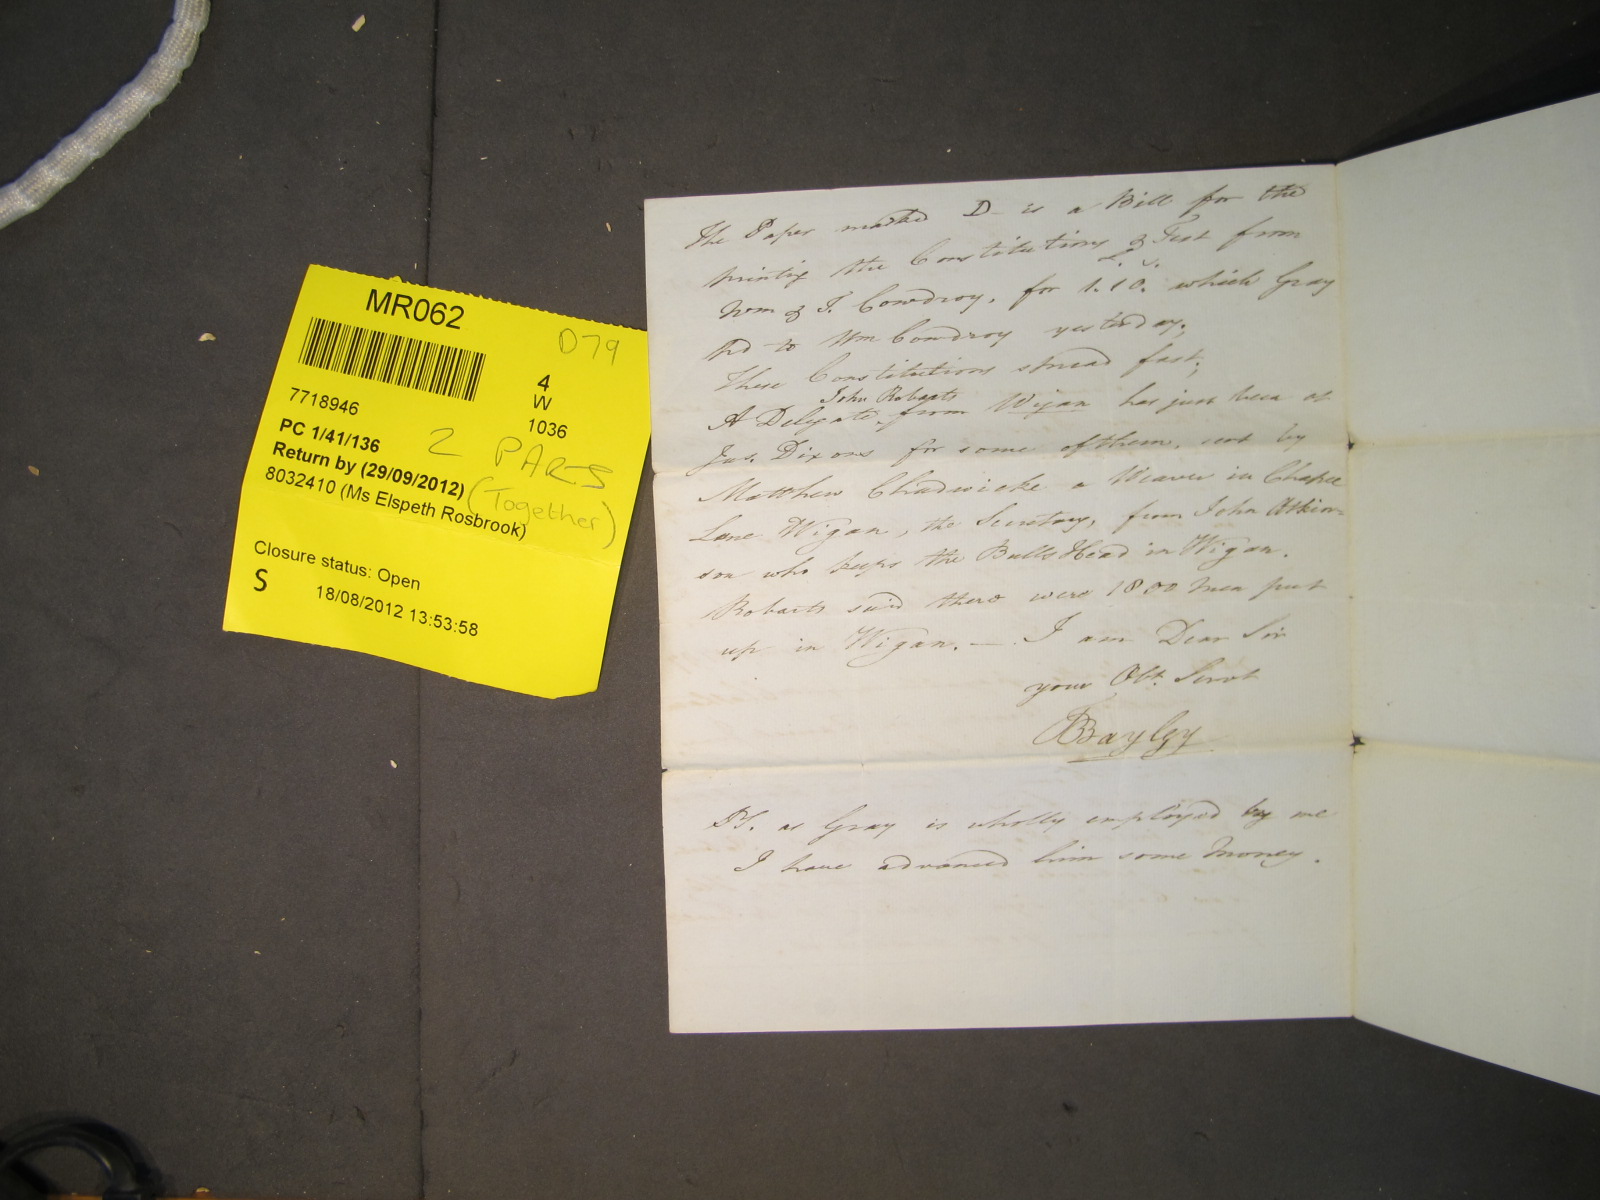 MR062
D79
4
W
1036
7718946
PC 1/41/136
2 PARTS
Return by (29/09/2012)
(Together)
8032410 (Ms Elspeth Rosbrook)
Closure status: Open
S
18/08/2012 13:53:58
The Paper marked D is a Bill for the
printing the Constitutions & Test from
Wm & T. Cowdroy, for 1.10. which Gray
pd to Wm Cowdroy yesterday.
These Constitutions spread fast.
John Roberts
A Delegate from Wigan has just been at
Jas. Dixons for some of them, sent by
Matthew Chadwicke a Weaver in Chapel
Lane Wigan, the Secretary, from John Atkin=
son who keeps the Bulls Head in Wigan.
Robarts said there were 1800 men put
up in Wigan. — I am Dear Sir
your Obt. Servt
Bayley
PS. as Gray is wholly employed by me
I have advanced him some Money.